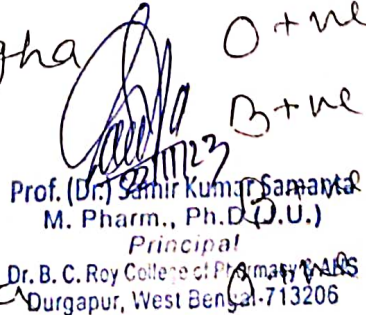 gha
O +ve
B +ve
22/11/23
Prof. (Dr.) Samir Kumar Samanta
B +ve
M. Pharm., Ph.D (J.U.)
Principal
Dr. B. C. Roy College of Pharmacy & AHS
Durgapur, West Bengal-713206